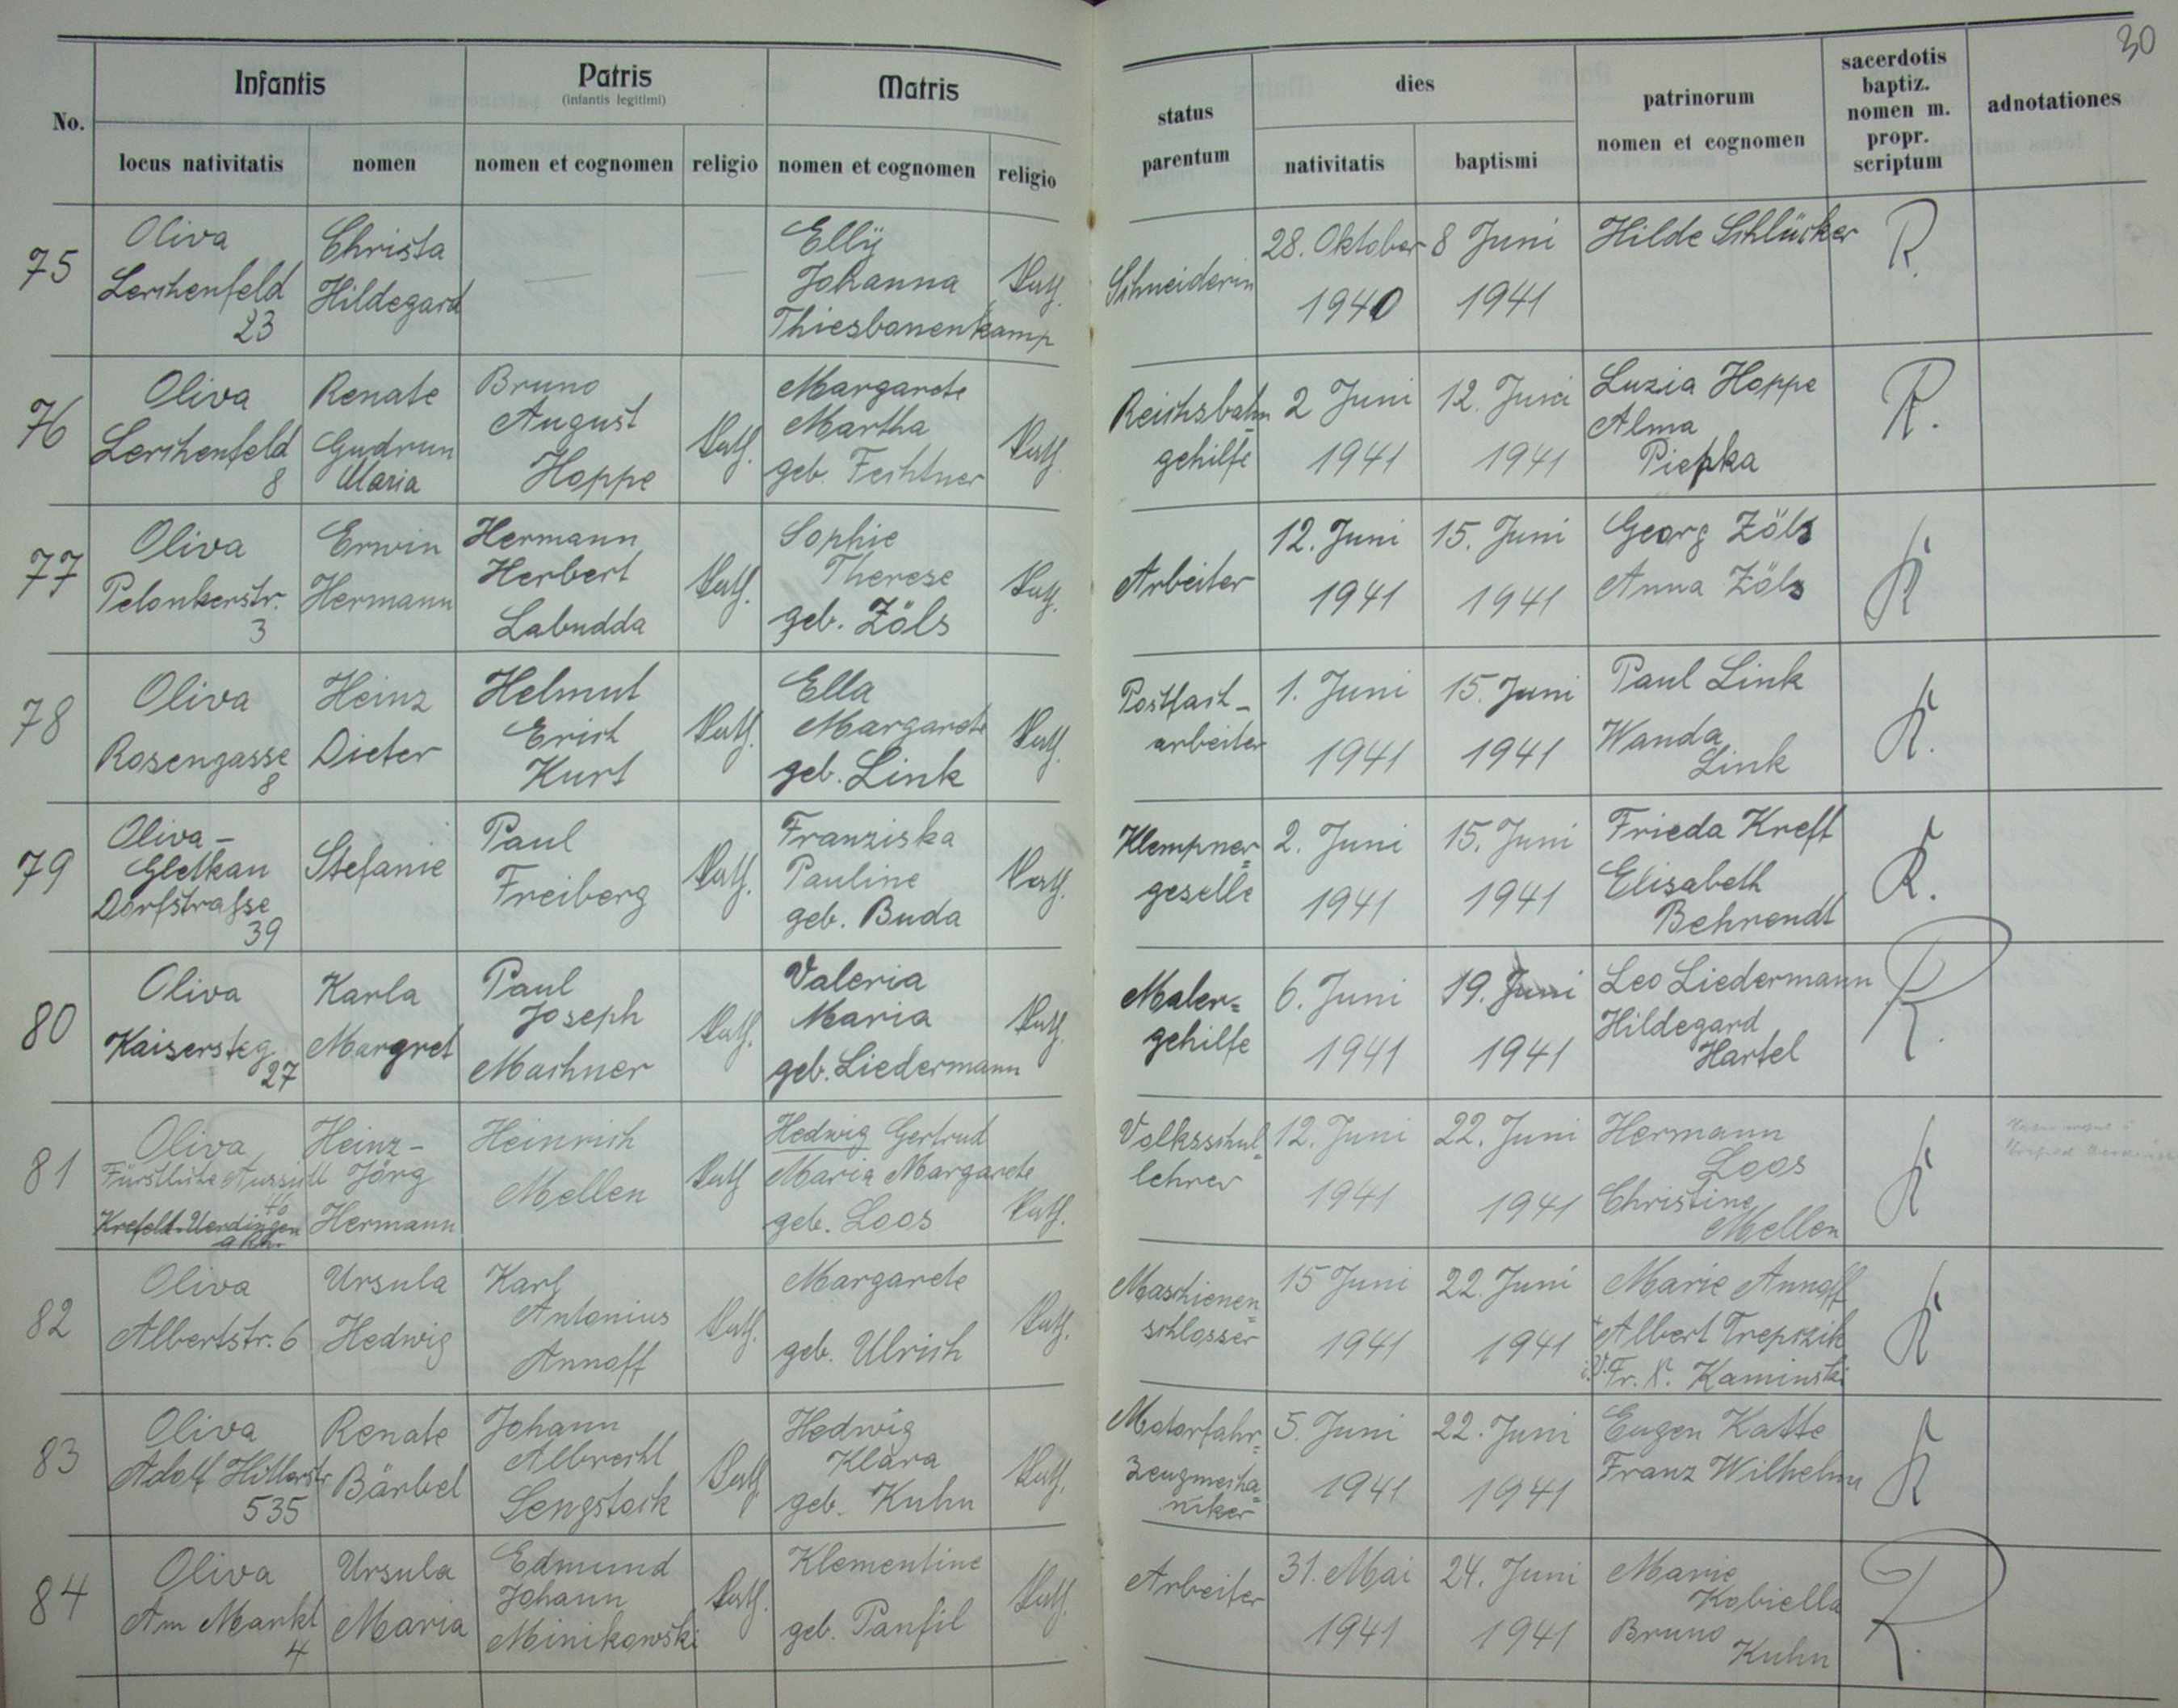 30
No.
Infantis
Patris
(infantis legitimi)
Matris
status
parentum
dies
patrinorum
nomen et cognomen
sacerdotis
baptiz.
nomen m.
propr.
scriptum
adnotationes
locus nativitatis
nomen
nomen et cognomen
religio
nomen et cognomen
religio
nativitatis
baptismi
75
Oliva
Lerchenfeld
23
Christa
Hildegard
Elly
Johanna
Thiesbonenkamp
kath.
Schneiderin
28. Oktober
1940
8 Juni
1941
Hilde Schlücker
R.
76
Oliva
Lerchenfeld
8
Renate
Gudrun
Maria
Bruno
August
Hoppe
kath.
Margarete
Martha
geb. Fechtner
kath.
Reichsbahn
gehilfe
2 Juni
1941
12. Juni
1941
Luzia Hoppe
Alma
Piepka
R.
77
Oliva
Pelonkerstr.
3
Erwin
Hermann
Hermann
Herbert
Labudda
kath.
Sophie
Therese
geb. Zöls
kath.
Arbeiter
12. Juni
1941
15. Juni
1941
Georg Zöls
Anna Zöls
K
78
Oliva
Rosengasse
8
Heinz
Dieter
Helmut
Erich
Kurt
kath.
Ella
Margarete
geb. Link
kath.
Postfach-
arbeiter
1. Juni
1941
15. Juni
1941
Paul Link
Wanda
Link
K.
79
Oliva-
Glettkau
Dorfstraße
39
Stefanie
Paul
Freiberg
kath.
Franziska
Pauline
geb. Buda
kath.
Klempner=
geselle
2. Juni
1941
15. Juni
1941
Frieda Kreft
Elisabeth
Behrendt
K.
80
Oliva
Kaisersteg
27
Karla
Margret
Paul
Joseph
Machner
kath.
Valeria
Maria
geb. Liedermann
kath.
Maler=
gehilfe
6. Juni
1941
19. Juni
1941
Leo Liedermann
Hildegard
Hartel
R.
81
Oliva
Fürstliche Aussicht
40
Krefeld-Uerdingen
a Rh.
Heinz-
Jörg
Hermann
Heinrich
Mellen
kath
Hedwig Gertrud
Maria Margarete
geb. Loos
kath.
Volksschul=
lehrer
12. Juni
1941
22. Juni
1941
Hermann
Loos
Christine
Mellen
K
82
Oliva
Albertstr. 6
Ursula
Hedwig
Karl
Antonius
Annoff
kath.
Margarete
geb. Ulrich
kath.
Maschienen=
schlosser
15 Juni
1941
22. Juni
1941
Marie Annoff
Albert Trepczik
i.V. Fr. K. Kaminski
K
83
Oliva
Adolf Hitlerstr
535
Renate
Bärbel
Johann
Albrecht
Sengstock
kath
Hedwig
Klara
geb. Kuhn
kath.
Motorfahr=
zeugmecha=
niker
5. Juni
1941
22. Juni
1941
Eugen Katte
Franz Wilhelm
K
84
Oliva
Am Markt
4
Ursula
Maria
Edmund
Johann
Minikowski
kath.
Klementine
geb. Panfil
kath.
Arbeiter
31. Mai
1941
24. Juni
1941
Marie
Kobiella
Bruno
Kuhn
R.